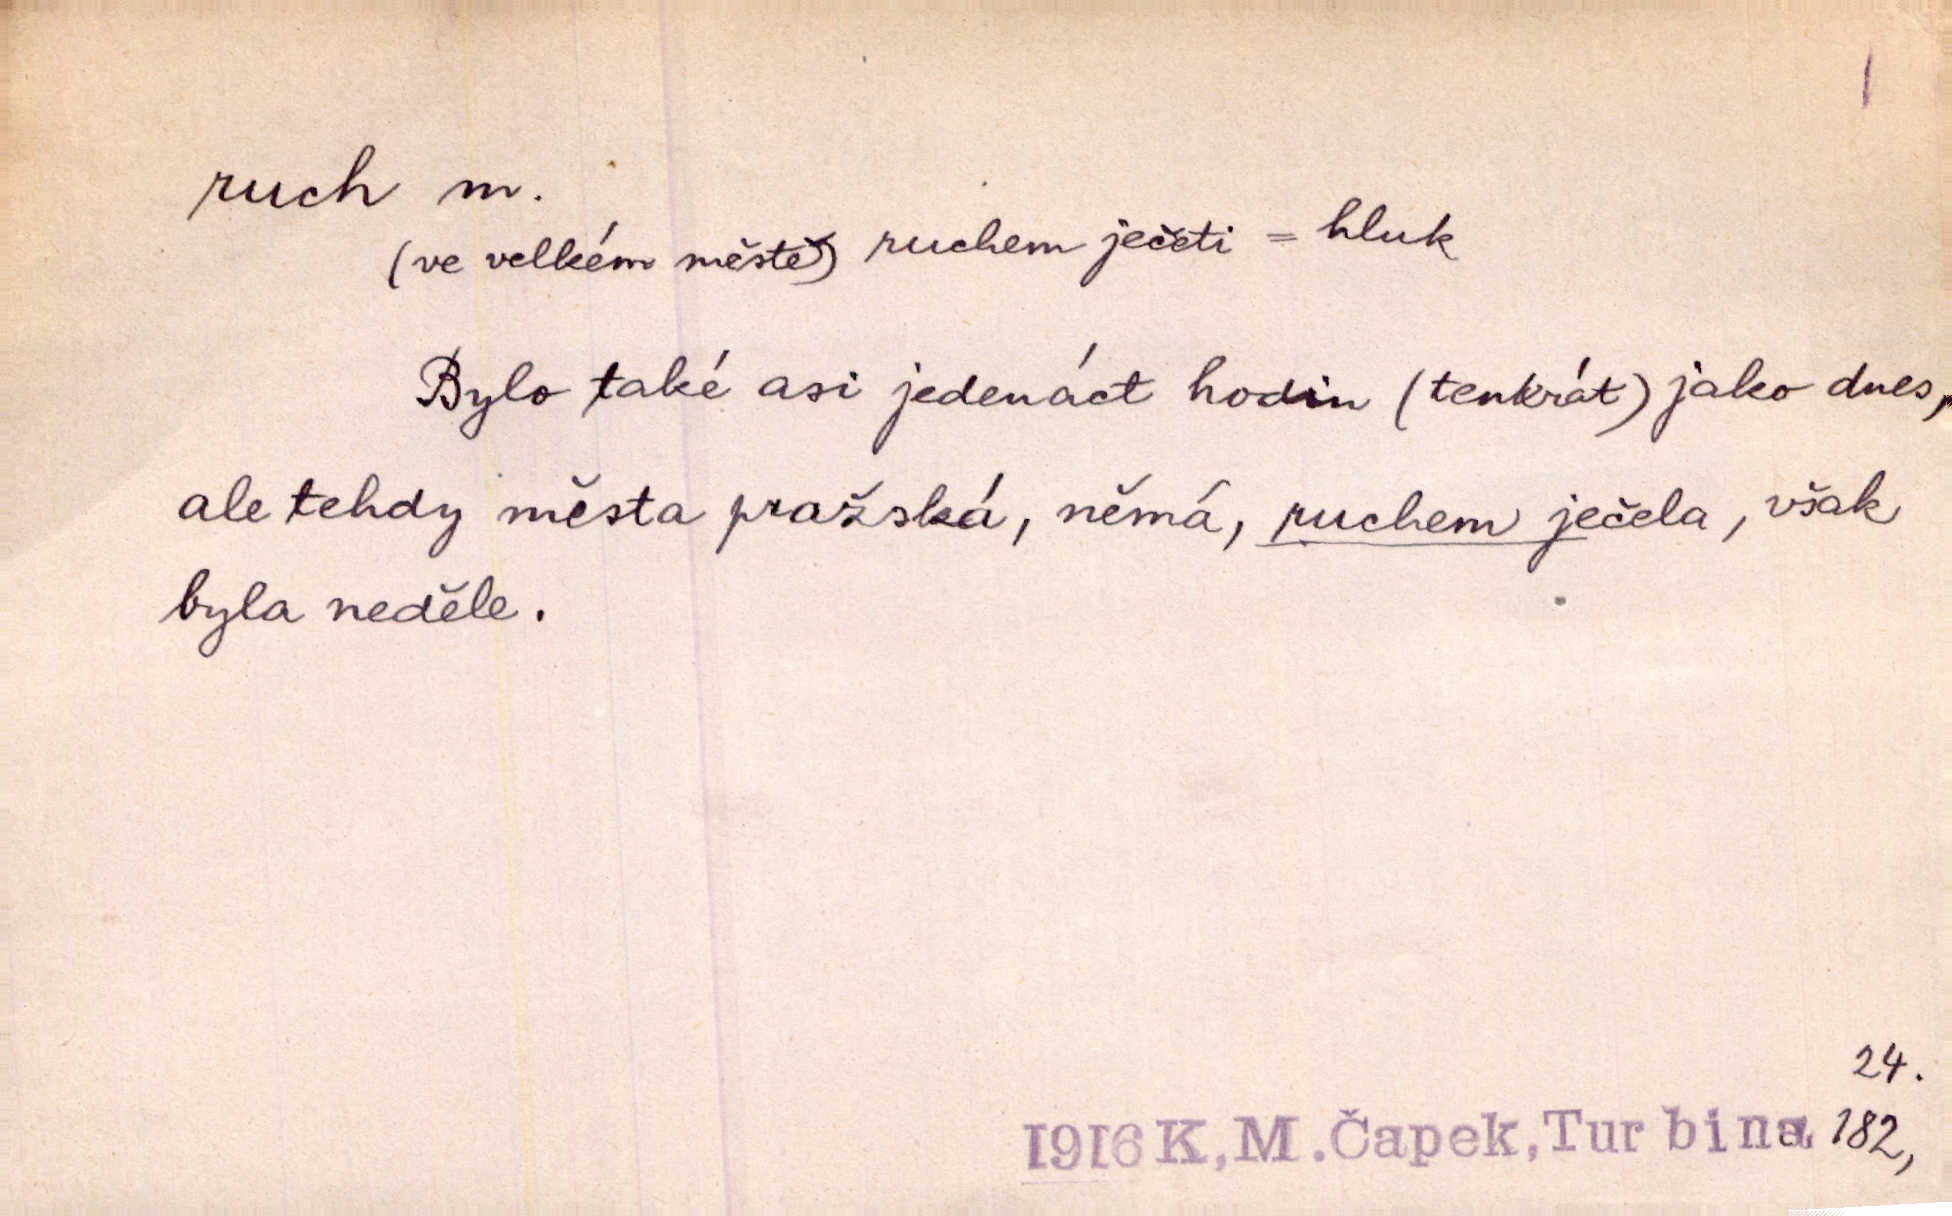 ruch m.
(ve velkém městě) ruchem ječeti = hluk
Bylo také asi jedenáct hodin (tenkrát) jako dnes,
ale tehdy města pražská, němá, ruchem ječela, však
byla neděle.
24.
1916 K,M.Čapek,Turbina 182,